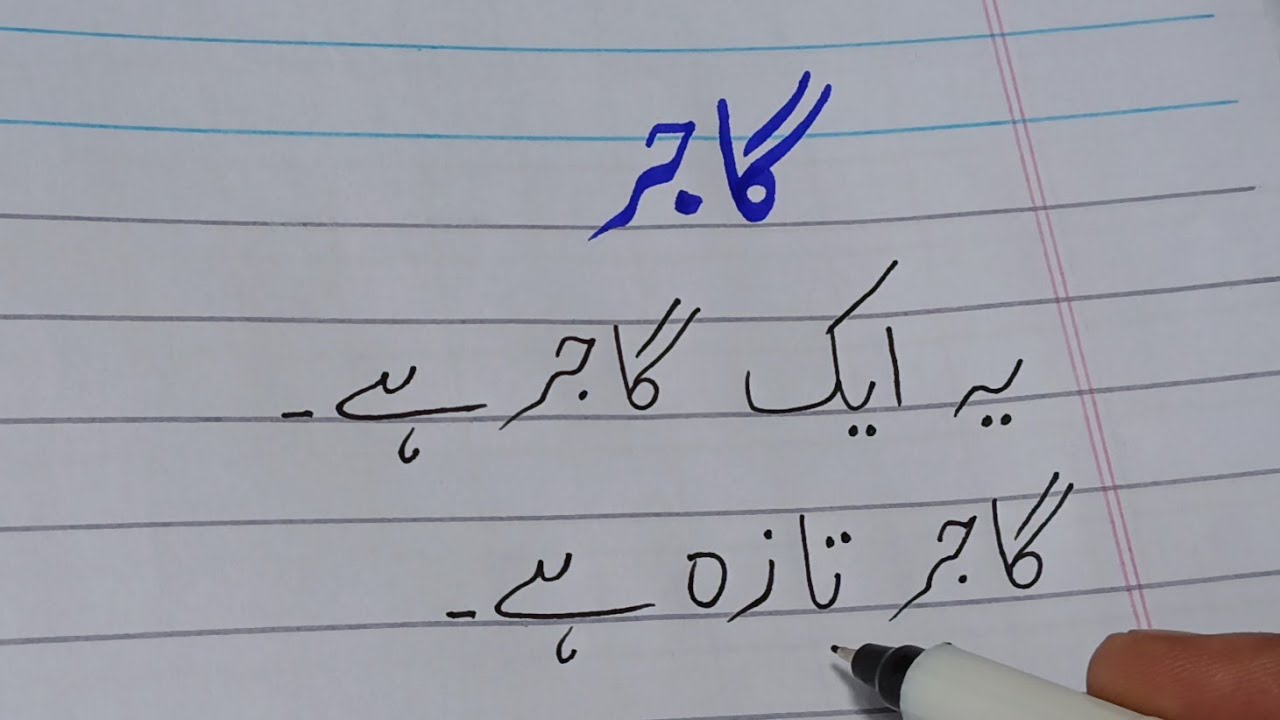 گاجر
یہ ایک گاجر ہے۔
گاجر تازہ ہے۔